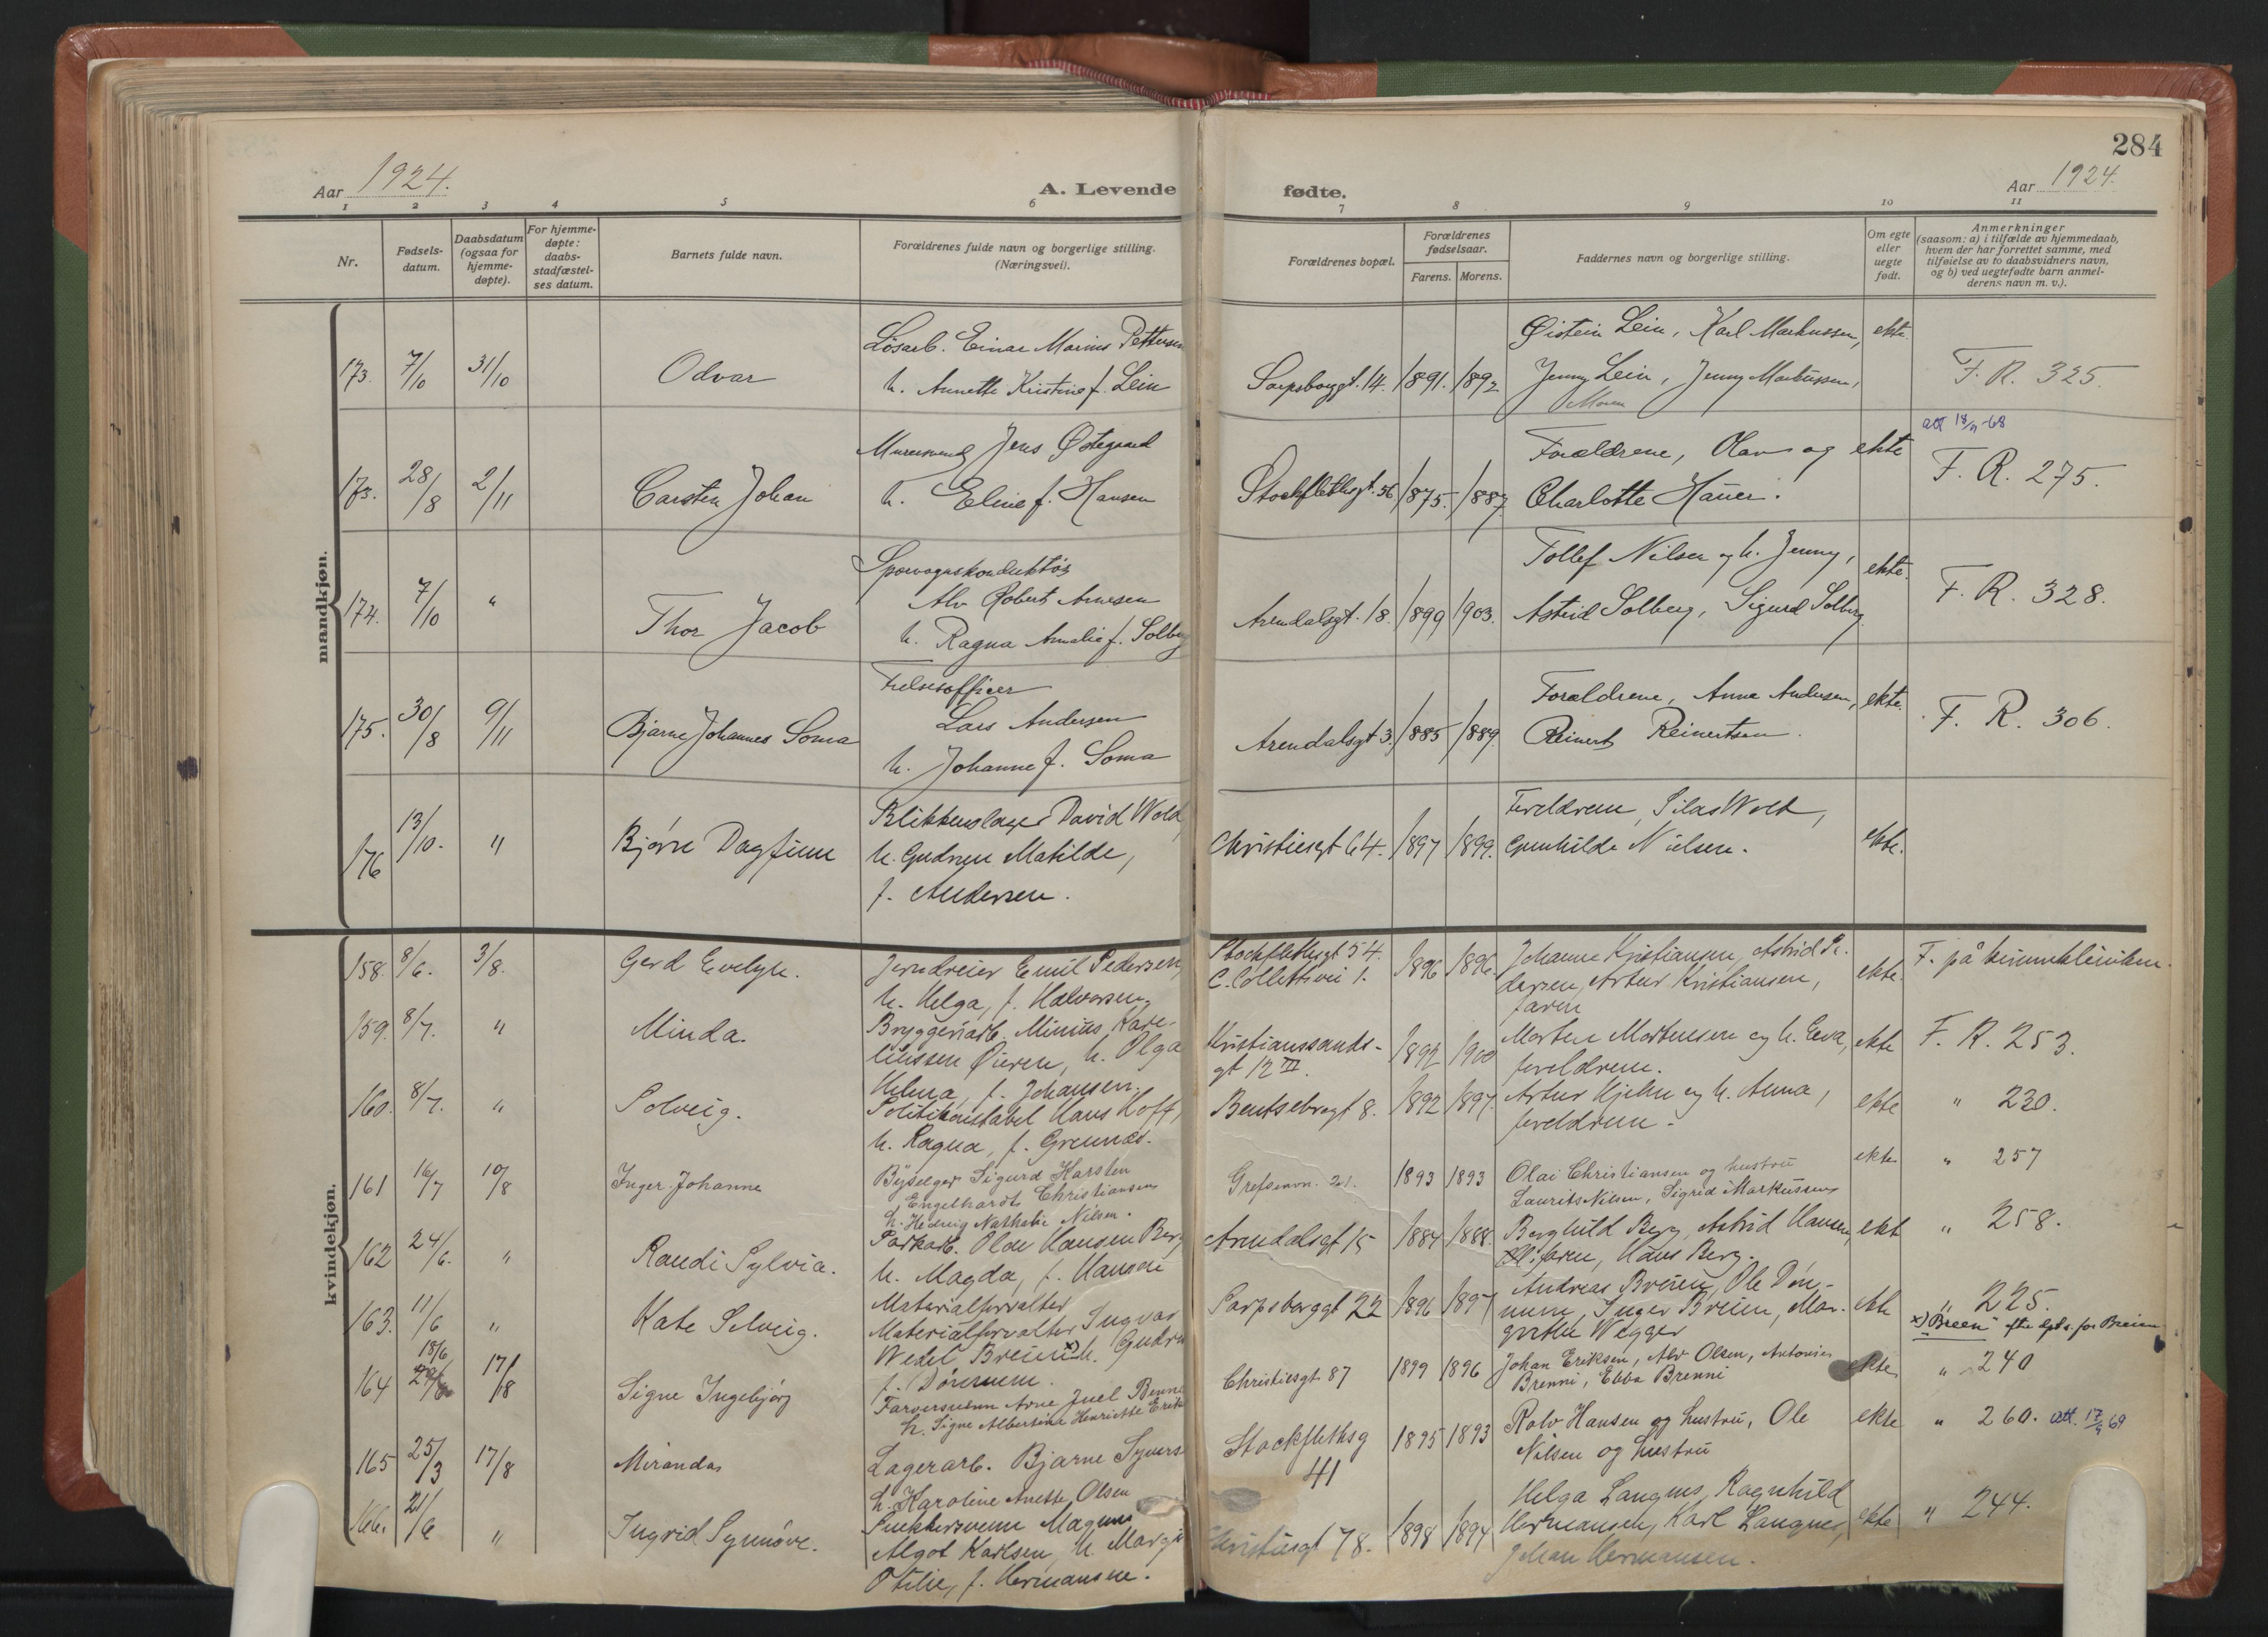 284
Aar 1924. A. Levende fødte. Aar 1924.
1 2 3 4 5 6 7 8 9 10 11
Nr. Fødsels-datum. Daabsdatum (ogsaa for hjemme-døpte). For hjemme-døpte: daabs-stadfæstel-ses datum. Barnets fulde navn. Forældrenes fulde navn og borgerlige stilling. (Næringsvei). Forældrenes bopæl. Forældrenes fødselsaar. Farens. Morens. Faddernes navn og borgerlige stilling. Om egte eller uegte født. Anmerkninger (saasom: a) i tilfælde av hjemmedaab, hvem der har forrettet samme, med tilføielse av to daabsvidners navn, og b) ved uegtefødte barn anmel-derens navn m. v.).
mandkjøn.
Løsarb. Einar Marius Pettersen Øistein Lein, Karl Markussen, ekte.
173. 7/10 31/10 Odvar h. Annette Kristine f. Lein Sarpsborggt. 14. 1891. 1892 Jenny Lein, Jenny Markussen, F. R. 325.
Moren
att 18/9-68
Murersvend Jens Østegaard Forældrene, Olav og ekte
173. 28/8 2/11 Carsten Johan h. Eline f. Hansen Stockflethsgt. 56 1875. 1887. Charlotte Hauer. F. R. 275.
Sporvognskonduktør Tollef Nilsen og h. Jenny, ekte.
Alv Robert Arnesen
174. 7/10 " Thor Jacob h. Ragna Amalie f. Solberg Arendalsgt. 18. 1899 1903. Astrid Solberg, Sigurd Solberg. F. R. 328.
Frelsesofficer
Lars Andersen Forældrene, Anna Andersen, ekte.
175. 30/8 9/11 Bjarne Johannes Soma h. Johanne f. Soma Arendalsgt 3. 1885 1889. Reinert Reinertsen. F. R. 306.
Blikkenslager David Wold, Foreldrene, Silas Wold,
176 13/10. " Bjørn Dagfinn h. Gudrun Matilde, Christiesgt 64. 1897 1899. Gunhilda Nielsen. ekte.
f. Andersen.
kvindekjøn.
158. 8/6. 3/8. Gerd Evelyn. Jerndreier Emil Pedersen, Stockflethsgt 54. 1896 1896. Johanne Kristiansen, Astrid Pe- ekte. F. på kvinneklinikken.
h. Helga, f. Halvorsen. C. Collettsvei 1. dersen, Artur Kristiansen,
faren
159. 8/7. " Minda. Bryggeriarb. Minius Kare- Kristianssands- 1892 1900 Morten Mortensen og h. Eva, ekte F. R. 253.
liussen Øieren, h. Olga gt 12 III. foreldrene.
Helma, f. Johansen.
160. 8/7. " Solveig. Politikonstabel Hans Hoff, Bentsebrogt 8. 1892 1897. Artur Kjelm og h. Anna, ekte " 230.
h. Ragna, f. foreldrene.
161 16/7 10/8 Inger Johanne Bysselger Sigurd Karsten Grefsenvn. 21. 1893 1893 Olai Christiansen og hustru ekte " 257
Engelhardt Christiansen Laurits Nilsen, Sigrid Markussen
h. Hedvig Nathalie Nilsen.
162 24/6. " Randi Sylvia. Parkarb. Olav Hansen Berg Arendalsgt 15 1884 1888. Borghild Berg, Astrid Hansen, ekt " 258.
h. Magda, f. Hansen faren, Hans Berg.
163. 11/6 " Kate Solveig. Materialforvalter Sarpsborggt 22 1896 1897 Andreas Breien, Ole Døn- ekte " 225.
Materialforvalter Ingvar num, Inger Breien, Mar- x) "Breen" efter opl. s. for Breien
Wedel Breien x) h. Gudrun grethe Wegger
f. Dønnum.
18/6
164 29/6 17/8 Signe Ingebjørg Farversvenn Arne Juel Brenni Christiesgt 87 1899 1896 Johan Eriksen, Alv Olsen, Antonie ekte " 240
h. Signe Albertine Henriette Erik Brenni, Ebba Brenni
165 25/3 17/8 Miranda Lagerarb. Bjarne Syvers Stockflethsg 41 1895 1893 Rolv Hansen og hustru, Ole ekte " 260. att. 17/9 69
h. Karoline Anette Olsen Nilsen og hustru
166. 21/6 " Ingrid Synnøve. Snekkersvenn Magnus Christiesgt 78. 1898 1894 Helga Langnes, Ragnhild ekte " 244.
Algot Karlsen, h. Margit Hermansen, Karl Langnes,
Otilie, f. Hermansen. Johan Hermansen.